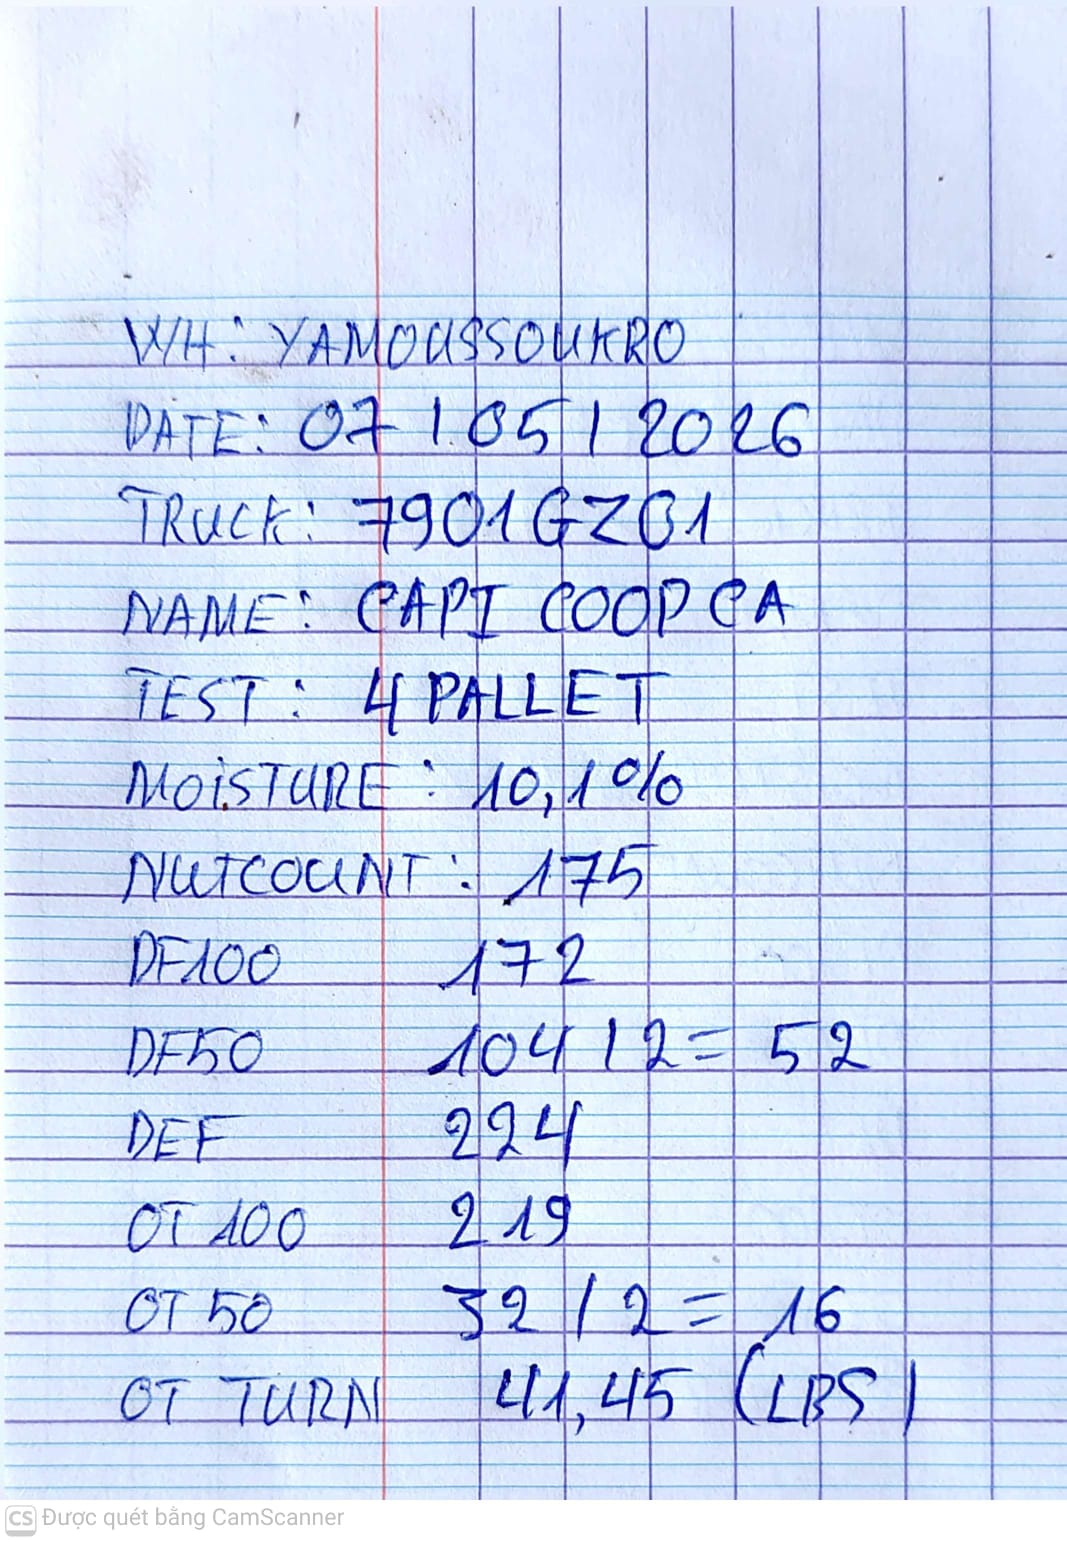 WH: YAMOUSSOUKRO
DATE: 07/05/2026
TRUCK: 7901GZ01
NAME: CAPI COOP CA
TEST: 4 PALLET
MOISTURE: 10,1%
NUTCOUNT: 175
DF100 172
DF50 104/2= 52
DEF 224
OT 100 219
OT 50 32/2= 16
OT TURN 41,45 (LBS)
CS Được quét bằng CamScanner